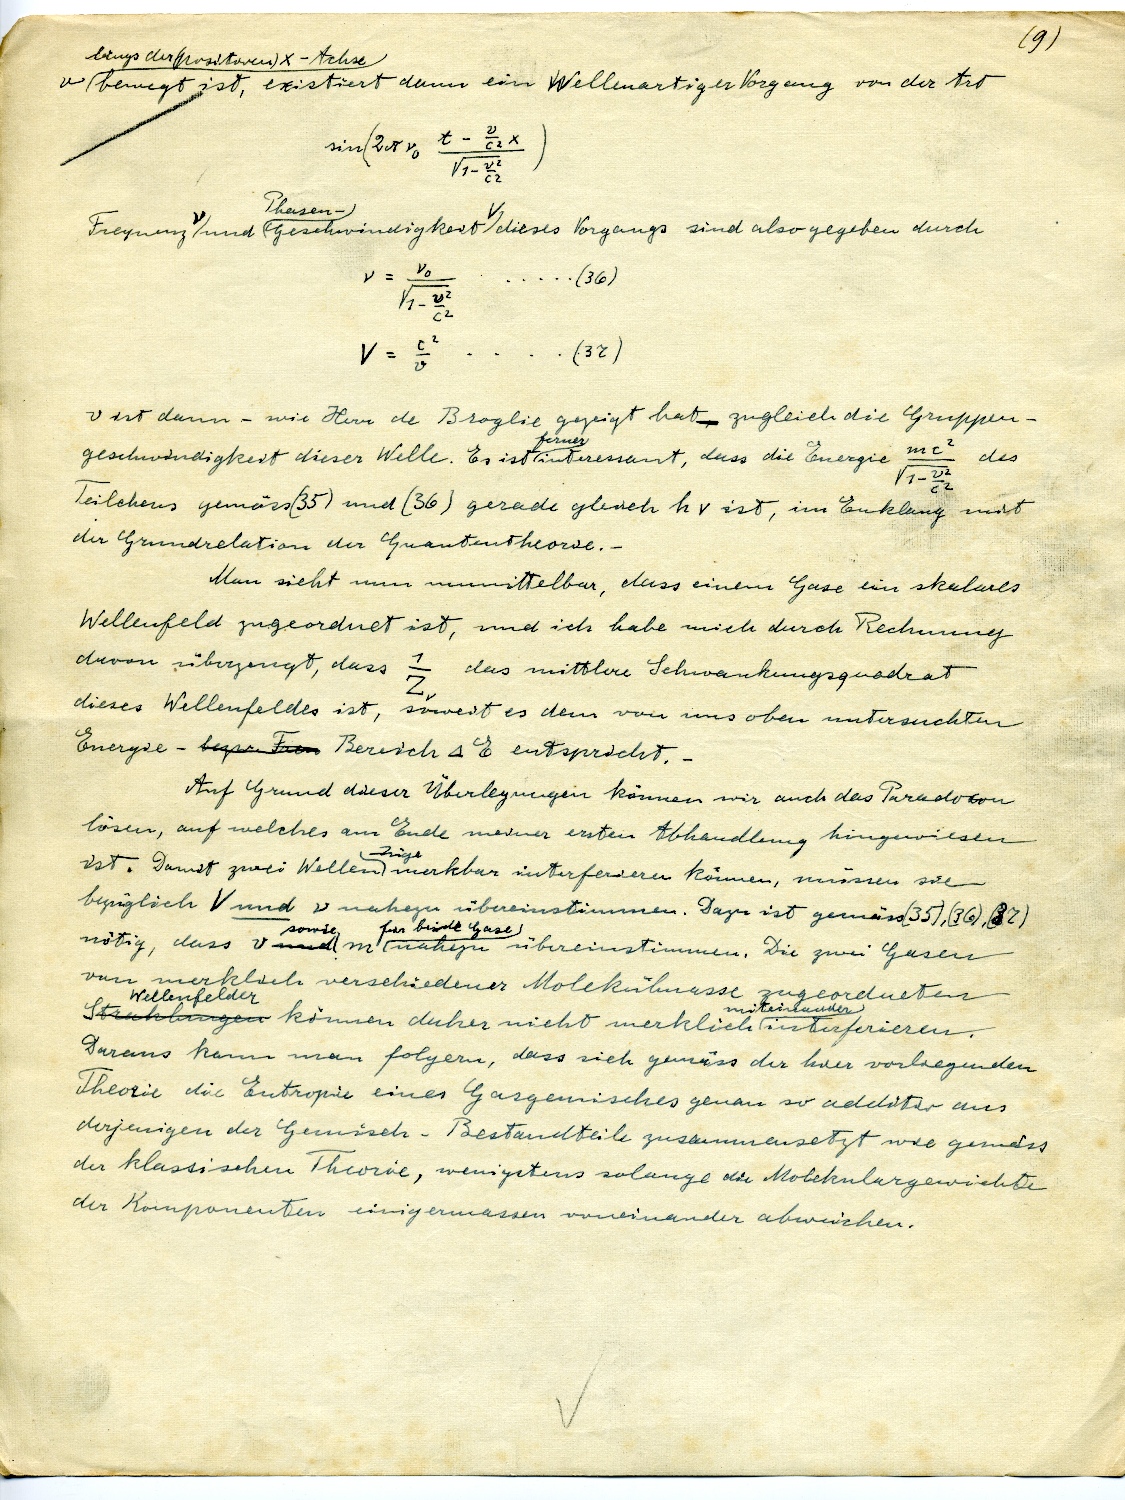 (9)
längs der (positiven) X-Achse
v bewegt ist, existiert dann ein Wellenartiger Vorgang von der Art
sin(2π ν₀ (t - v/c² x)/√(1 - v²/c²))
Phasen-
Frequenz ν und Geschwindigkeit V dieses Vorgangs sind also gegeben durch
ν = ν₀/√(1 - v²/c²) . . . . . . (36)
V = c²/v . . . . . (37)
v ist dann – wie Herr de Broglie gezeigt hat –, zugleich die Gruppen-
ferner
geschwindigkeit dieser Welle. Es ist interessant, dass die Energie mc²/√(1 - v²/c²) des
Teilchens gemäss (35) und (36) gerade gleich hν ist, im Einklang mit
der Grundrelation der Quantentheorie. –
Man sieht nun unmittelbar, dass einem Gase ein skalares
Wellenfeld zugeordnet ist, und ich habe mich durch Rechnung
davon überzeugt, dass 1/Zᵥ das mittlere Schwankungsquadrat
dieses Wellenfeldes ist, soweit es dem von uns oben untersuchten
Energie – Bereich ΔE entspricht. –
Auf Grund dieser Überlegungen können wir auch das Paradoxon
lösen, auf welches am Ende meiner ersten Abhandlung hingewiesen
züge
ist. Damit zwei Wellen merkbar interferieren können, müssen sie
bezüglich V und ν nahezu übereinstimmen. Dazu ist gemäss (35), (36), (37)
sowie für beide Gase
nötig, dass v und m nahezu übereinstimmen. Die zwei Gasen
von merklich verschiedener Molekülmasse zugeordneten
Wellenfelder miteinander
Strahlungen können daher nicht merklich interferieren.
Daraus kann man folgern, dass sich gemäss der hier vorliegenden
Theorie die Entropie eines Gasgemisches genau so additiv aus
derjenigen der Gemisch-Bestandteile zusammensetzt wie gemäss
der klassischen Theorie, wenigstens solange die Molekulargewichte
der Komponenten einigermassen voneinander abweichen.